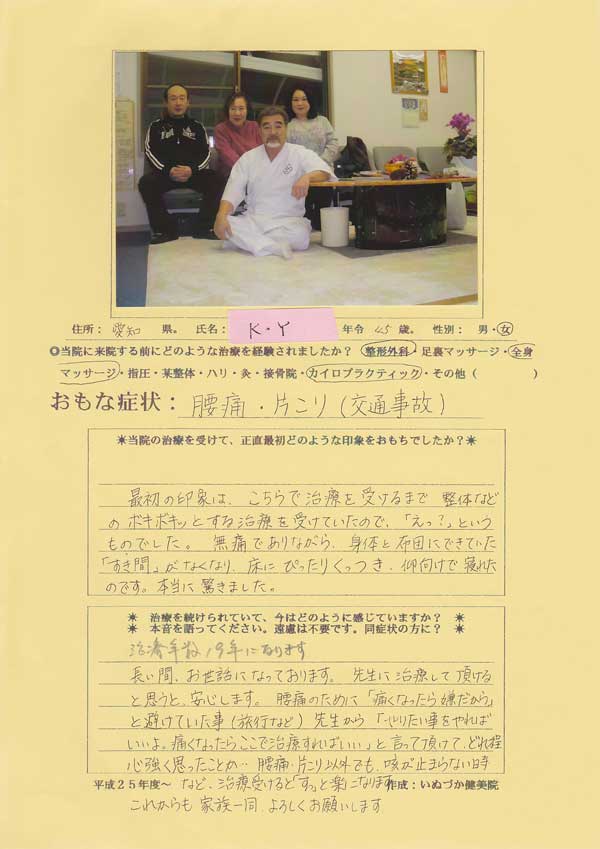 住所： 愛知 県。 氏名： K・Y 年令 45 歳。 性別： 男・女
◎当院に来院する前にどのような治療を経験されましたか？ 整形外科・足裏マッサージ・全身
マッサージ・指圧・某整体・ハリ・灸・接骨院・カイロプラクティック・その他（ ）
おもな症状： 腰痛・片こり（交通事故）
✴当院の治療を受けて、正直最初どのような印象をおもちでしたか？✴
最初の印象は、こちらで治療を受けるまで 整体など
の ボキボキッとする治療を受けていたので、「えっ？」という
ものでした。 無痛でありながら、身体と布団にできていた
「すき間」がなくなり、床に ぴったりくっつき、仰向けで寝れた
のです。本当に驚きました。
✴ 治療を続けられていて、今はどのように感じていますか？ ✴
✴ 本音を語ってください。遠慮は不要です。同症状の方に？ ✴
治療年数19年になります
長い間、お世話になっております。 先生に治療して頂ける
と思うと、安心します。 腰痛のために「痛くなったら嫌だから」
と避けていた事（旅行など）先生から「やりたい事をやれば
いいよ。痛くなったらここで治療すればいい」と言って頂けて、どれ程
心強く思ったことか… 腰痛・片こり以外でも、咳が止まらない時
平成２５年度～ など、治療受けると「すっ」と楽になります 作成：いぬづか健美院
これからも 家族一同、よろしくお願いします